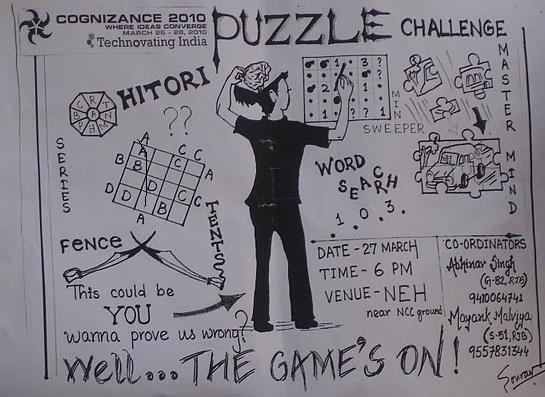 COGNIZANCE 2010
WHERE IDEAS CONVERGE
MARCH 26 - 28, 2010
Technovating India
PUZZLE CHALLENGE
HITORI
??
SERIES
A
A C C
B B C A
D D D C
A
FENCE
TENTS
MINSWEEPER
1 3 ?
2
1
? ?
MASTER MIND
WORD SEARCH
. 1 . 0 . 3 .
This could be
YOU
wanna prove us wrong?
DATE - 27 MARCH
TIME - 6 PM
VENUE - NEH
near NCC ground
CO-ORDINATORS
Abhinav Singh
(G-82, RJB)
9410064741
Mayank Malviya
(S-51, RJB)
9557831344
Well... THE GAME'S ON!
Sourav